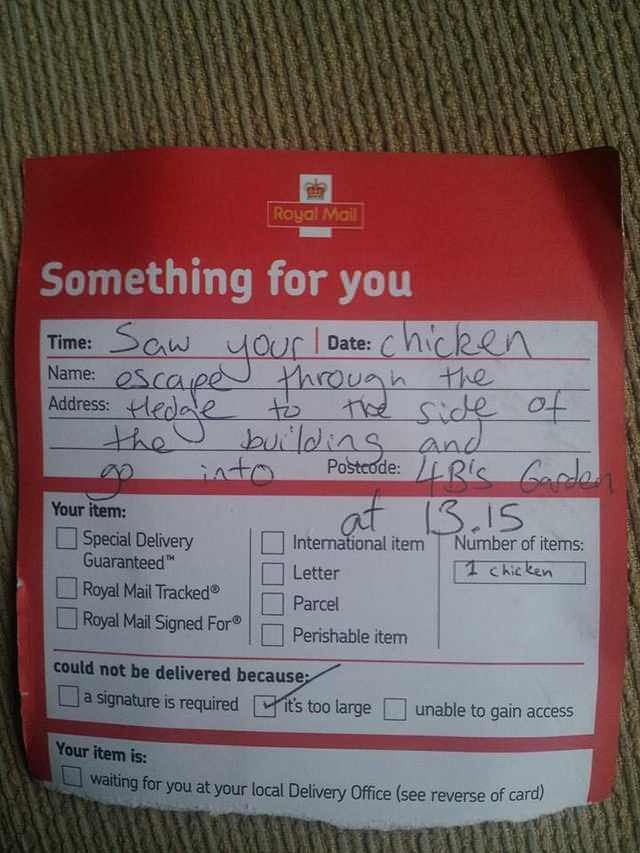 Royal Mail
Something for you
Time: Saw your Date: chicken
Name: escape through the
Address: Hedge to the side of
the building and
go into Postcode: 4B's Garden
at 13.15
Your item:
Special Delivery Guaranteed™
Royal Mail Tracked®
Royal Mail Signed For®
International item
Letter
Parcel
Perishable item
Number of items:
1 chicken
could not be delivered because:
a signature is required it's too large unable to gain access
Your item is:
waiting for you at your local Delivery Office (see reverse of card)